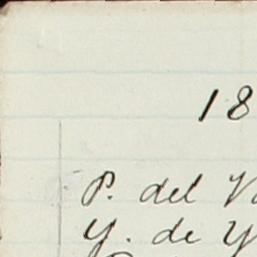 18
P. del V
Y. de Y